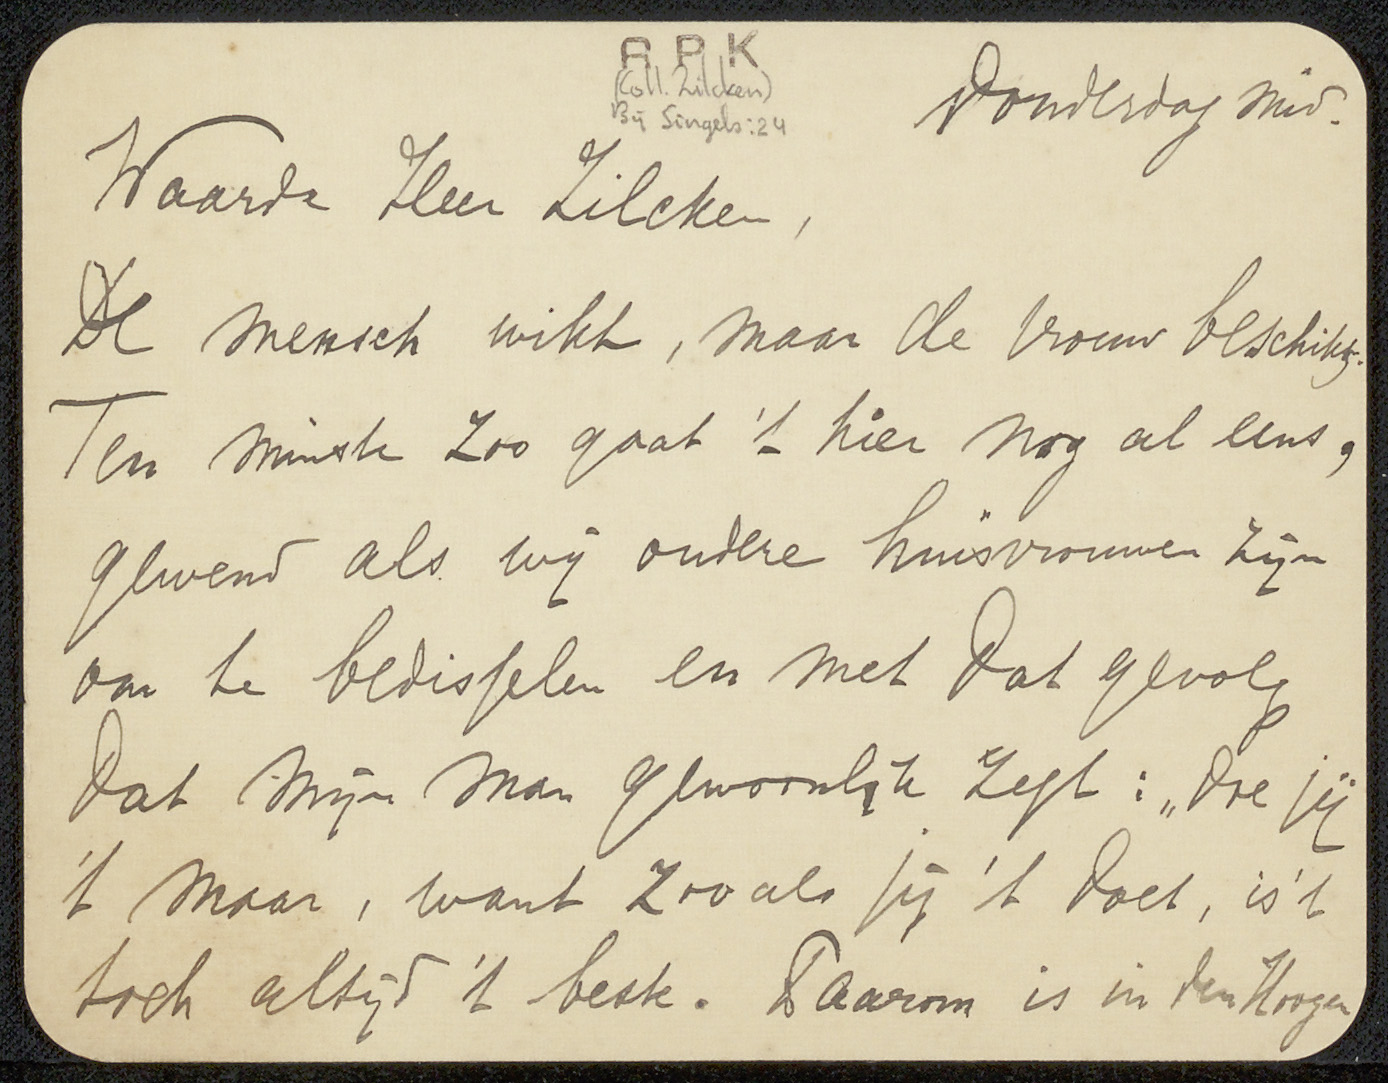 A P K
(Coll. Zilcken)
Bij Singels: 24
Donderdag mid.
Waarde Heer Zilcken,
De mensch wikt, maar de vrouw beschikt.
Ten minste zoo gaat 't hier nog al eens,
gewend als wij oudere huisvrouwen zijn
om te bedisselen en met dat gevolg
dat mijn man gewoonlijk zegt: „doe jij
't maar, want zooals jij 't doet, is 't
toch altijd 't beste. Daarom is in den Hoogen